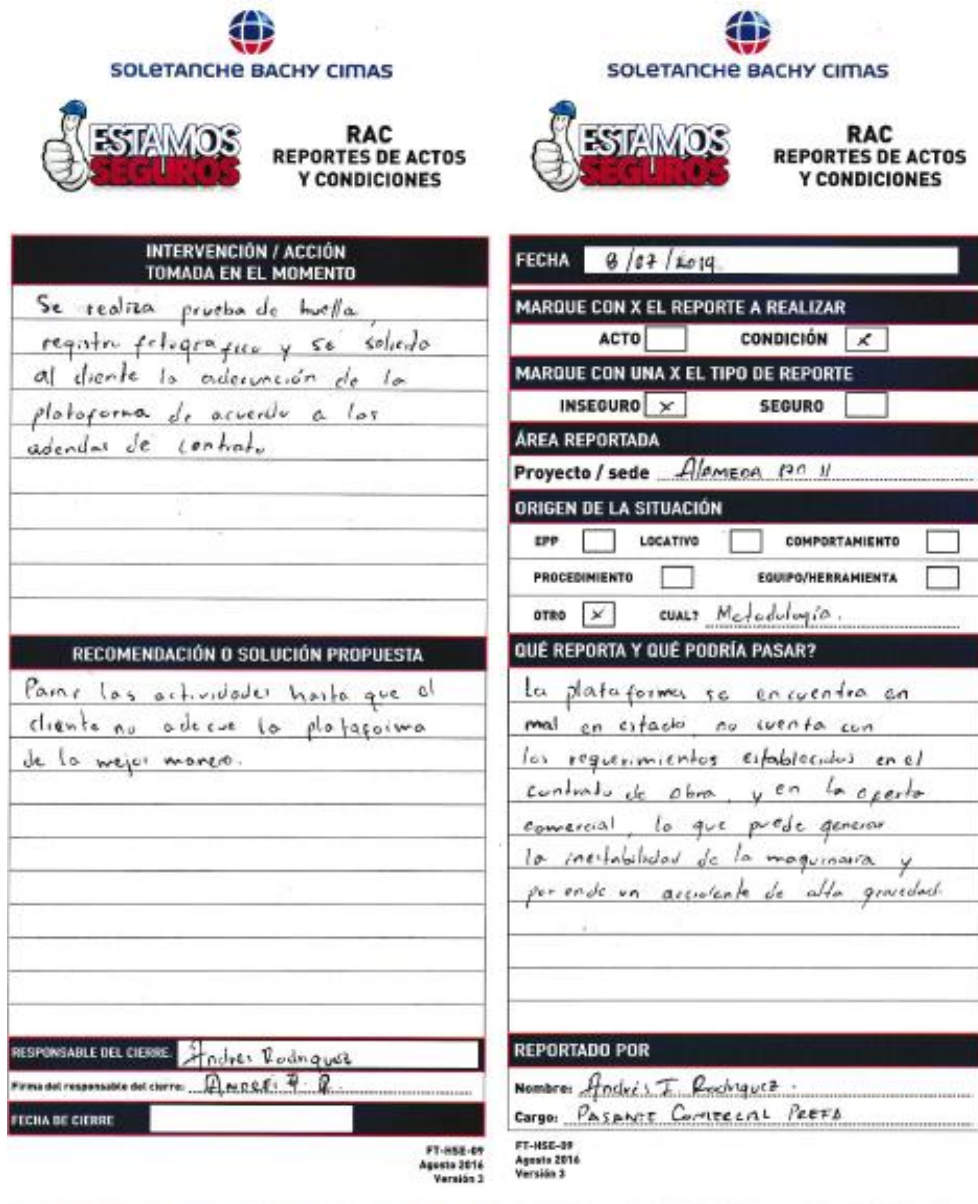 SOLETANCHE BACHY CIMAS
ESTAMOS
SEGUROS
RAC
REPORTES DE ACTOS
Y CONDICIONES
INTERVENCIÓN / ACCIÓN
TOMADA EN EL MOMENTO
Se realiza prueba de huella,
registro fotografico y se solicita
al cliente la adecuación de la
plataforma de acuerdo a las
adendas de contrato
RECOMENDACIÓN O SOLUCIÓN PROPUESTA
Parar las actividades hasta que el
cliente no adecue la plataforma
de la mejor manera.
RESPONSABLE DEL CIERRE: Andres Rodriguez
Firma del responsable del cierre: Andres R.
FECHA DE CIERRE
FT-HSE-09
Agosto 2016
Versión 3
SOLETANCHE BACHY CIMAS
ESTAMOS
SEGUROS
RAC
REPORTES DE ACTOS
Y CONDICIONES
FECHA 8/07/2019
MARQUE CON X EL REPORTE A REALIZAR
ACTO CONDICIÓN x
MARQUE CON UNA X EL TIPO DE REPORTE
INSEGURO x SEGURO
ÁREA REPORTADA
Proyecto / sede Alameda 11
ORIGEN DE LA SITUACIÓN
EPP LOCATIVO COMPORTAMIENTO
PROCEDIMIENTO EQUIPO/HERRAMIENTA
OTRO x CUAL? Metodología.
QUÉ REPORTA Y QUÉ PODRÍA PASAR?
La plataforma se encuentra en
mal en estado no cuenta con
los requerimientos establecidos en el
contrato de obra, y en la oferta
comercial, lo que puede generar
la inestabilidad de la maquinaria y
por ende un accidente de alta gravedad.
REPORTADO POR
Nombre: Andrés F. Rodriguez.
Cargo: PASANTE COMERCIAL
FT-HSE-09
Agosto 2016
Versión 3